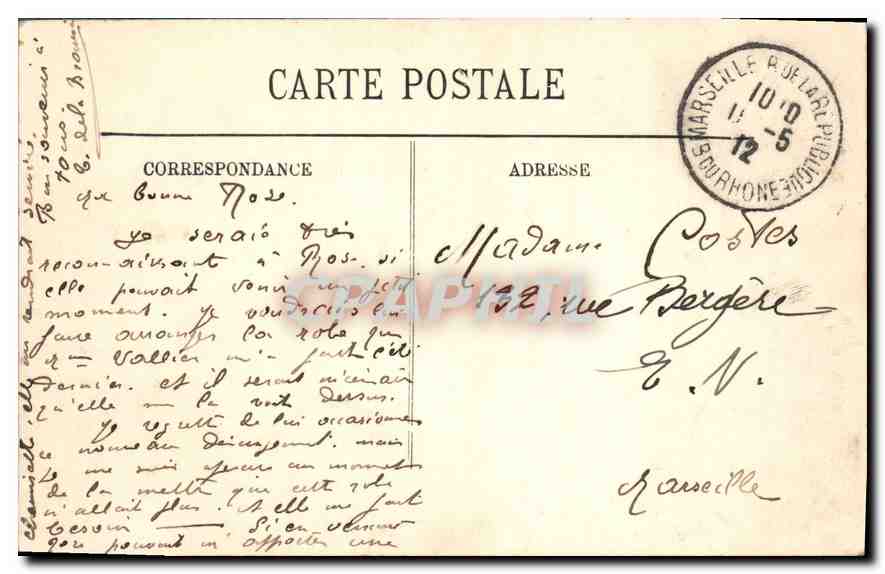 CARTE POSTALE
CORRESPONDANCE
ADRESSE
MARSEILLE R. DE LA RÉPUBLIQUE
10
11 -5
12
BOU DU RHONE
CPAPHIL
Ma bonne Rose.
Je serais très
reconnaissant à Rose si
elle pouvait venir un petit
moment. Je voudrais lui
faire arranger la robe que
Mme Vallier m'a fait l'été
dernier. et il serait nécessaire
qu'elle me la voit dessus.
Je regrette de lui occasionner
ce nouveau dérangement. mais
Je me suis aperçue au moment
de la mettre que cette robe
n'allait plus. et elle me fait
besoin — Si en venant
Rose pouvait m'apporter une
elle me rendrait service.
Bon souvenir à
tous.
Madame Costes
132, rue Bergère
E. V.
Marseille